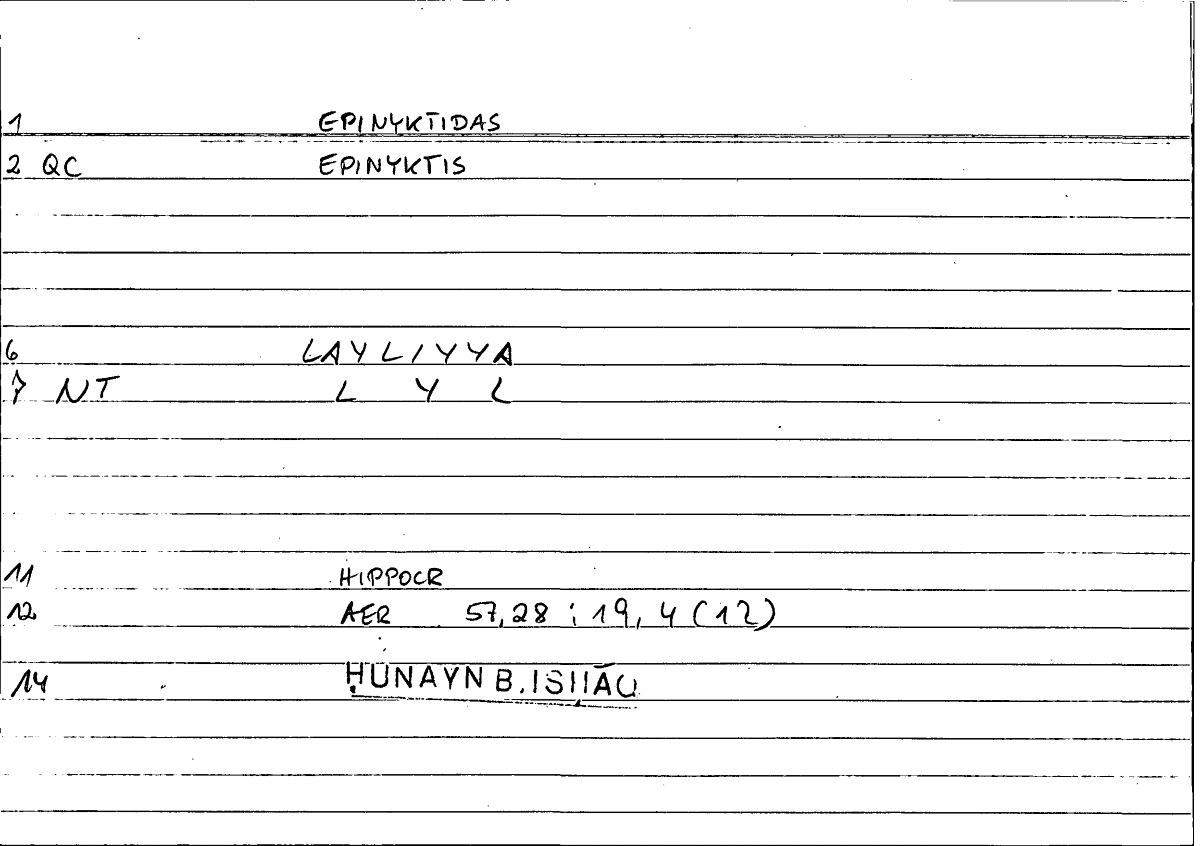 1 EPINYKTIDAS
2 QC EPINYKTIS
6 LAYLIYYA
7 NT L Y L
11 HIPPOCR
12 AER 57,28 ; 19, 4 (12)
14 ḤUNAYN B. ISḤĀQ